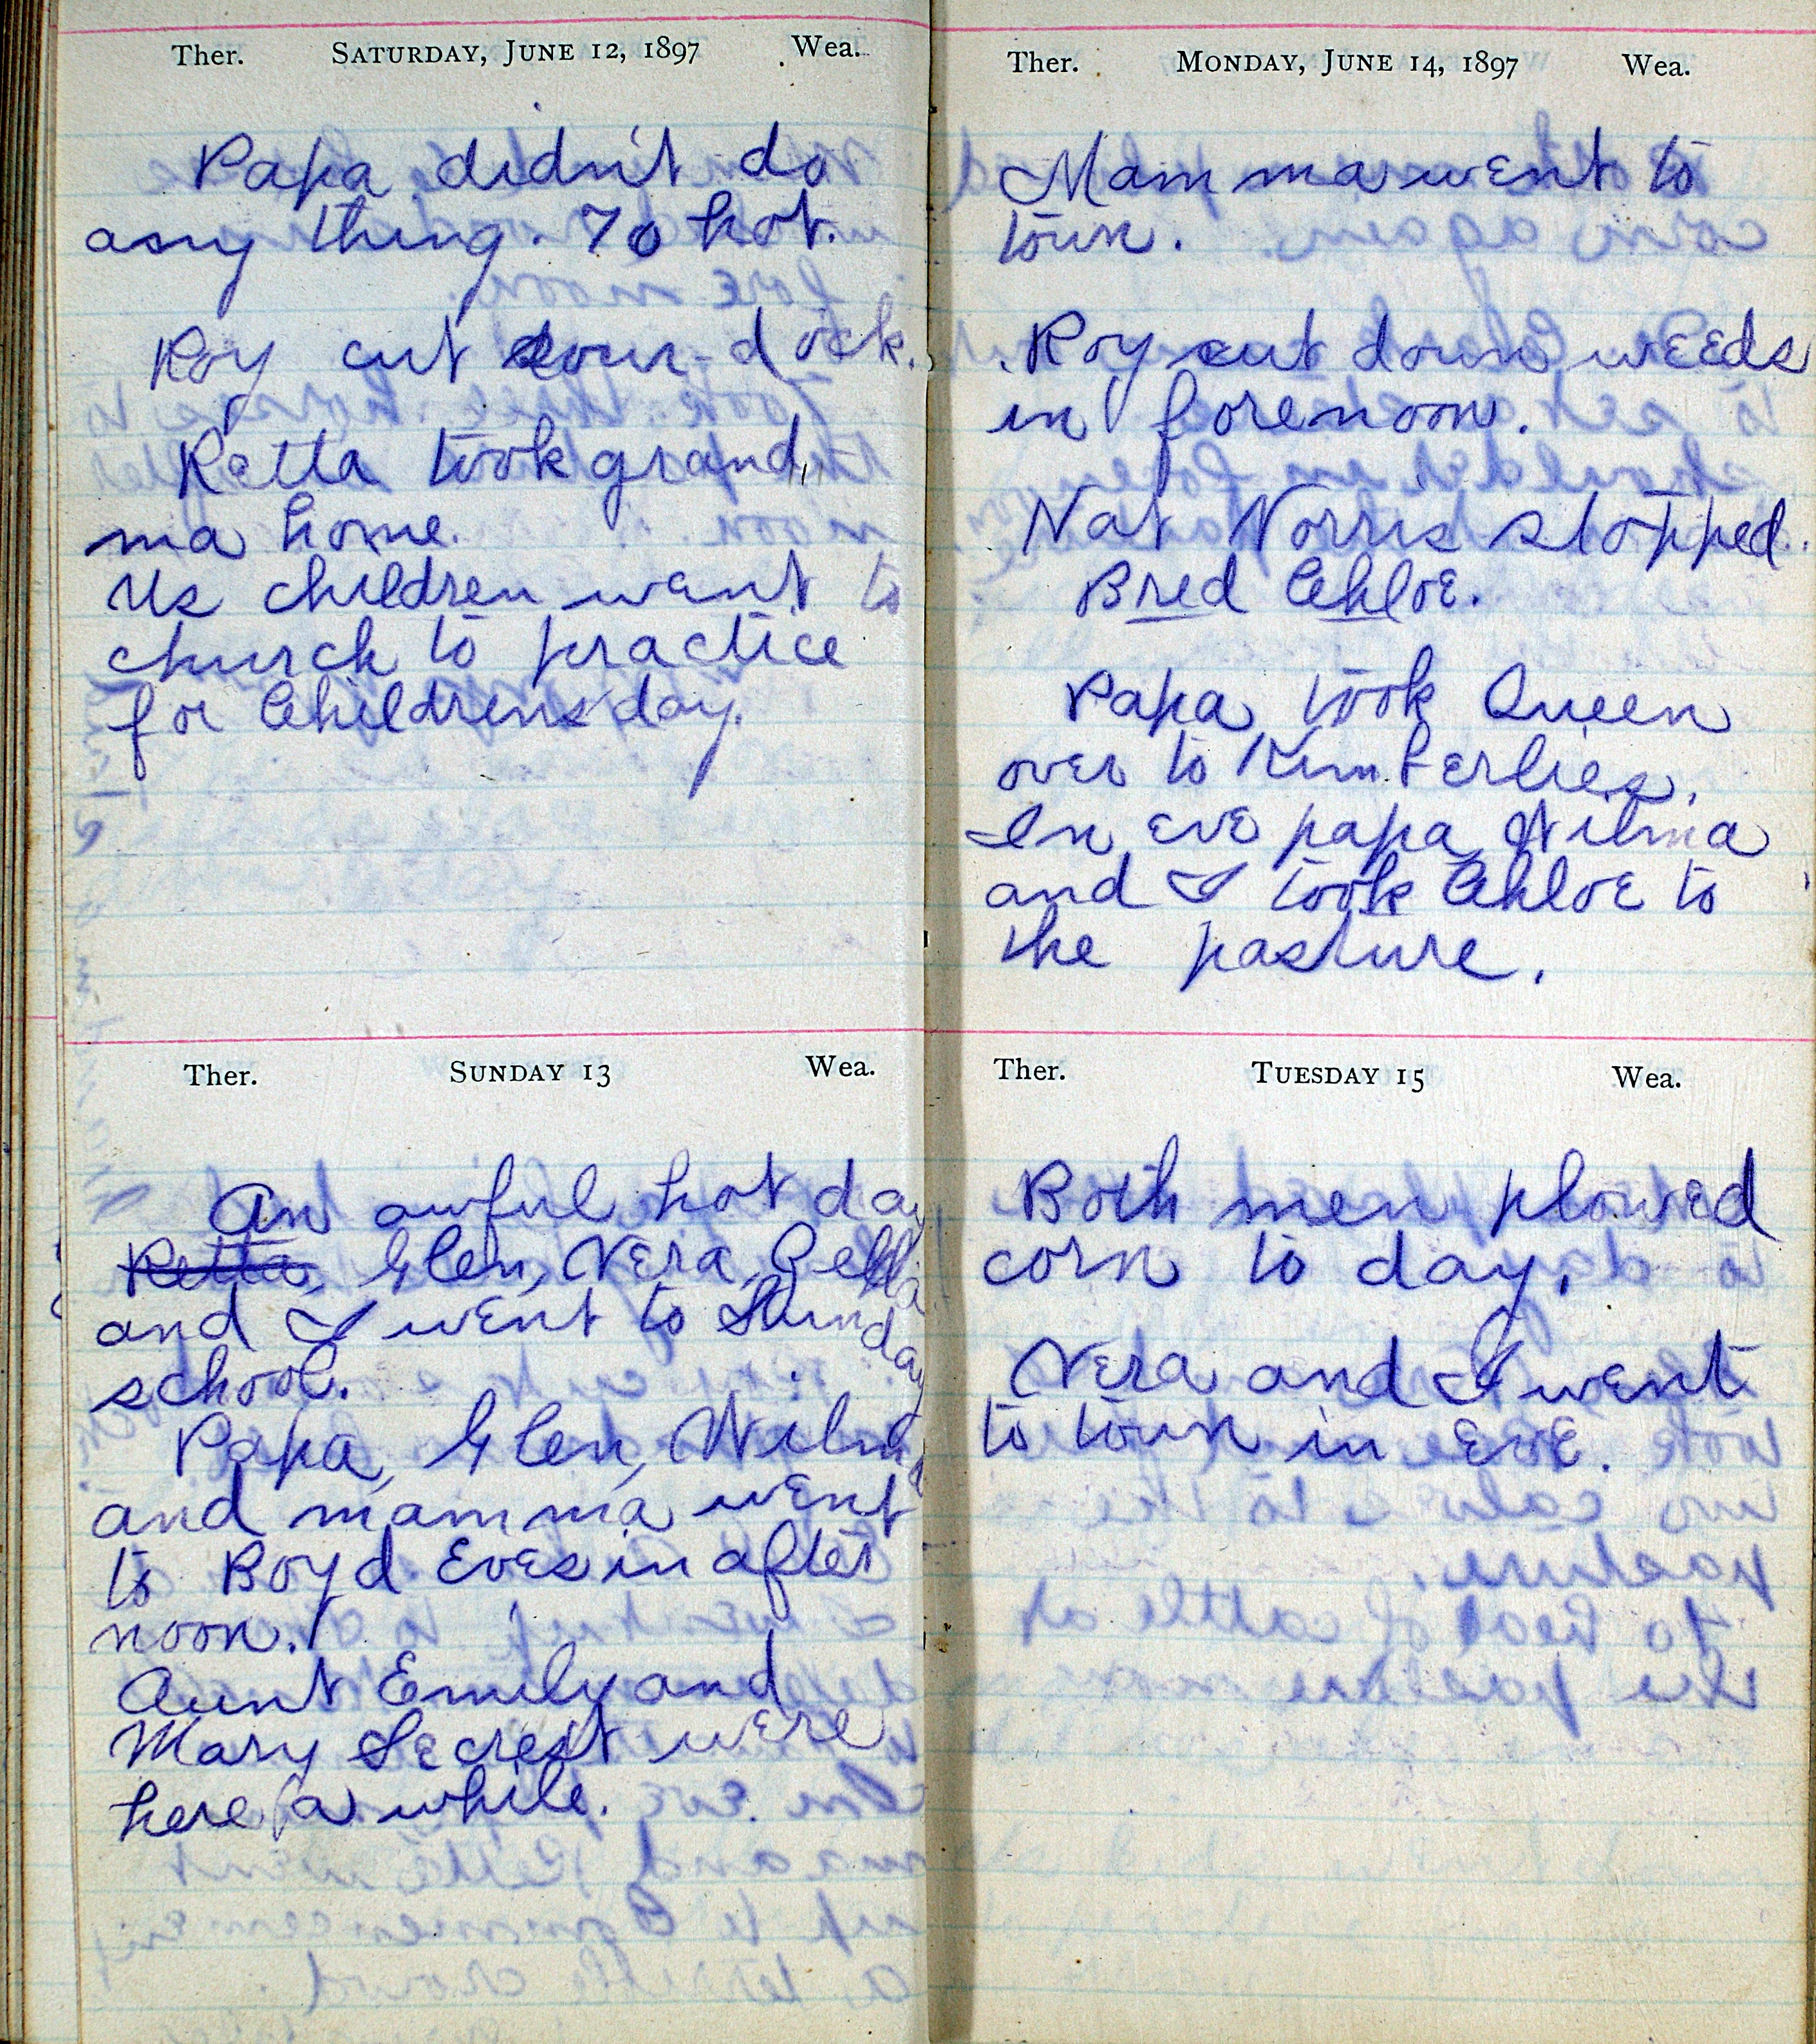 Ther. SATURDAY, JUNE 12, 1897 Wea.
Papa didn't do
any thing. To hot.
Roy cut sour-dock.
Retta took grand,,
ma home.
Us children went to
church to practice
for Childrens day.
Ther. SUNDAY 13 Wea.
An awful hot day
Retta, Glen, Vera, Della
and I went to Sunday
school.
Papa, Glen, Wilma
and mamma went
to Boyd Eves in after
noon.
Aunt Emily and
Mary Secrest were
here a while.
Ther. MONDAY, JUNE 14, 1897 Wea.
Mamma went to
town.
Roy cut down weeds
in forenoon.
Nat Norris stopped.
Bred Chloe.
Papa took Queen
over to Kimberlies.
In eve papa Wilma
and I took Chloe to
the pasture.
Ther. TUESDAY 15 Wea.
Both men plowed
corn to day.
Vera and I went
to town in eve.